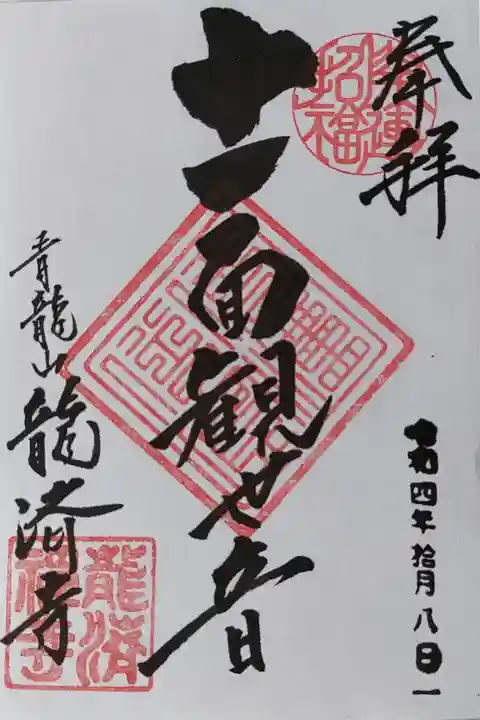 奉拝
開運
招福
十一面観世音
青龍山龍済寺
龍済
禅寺
令和四年拾月八日